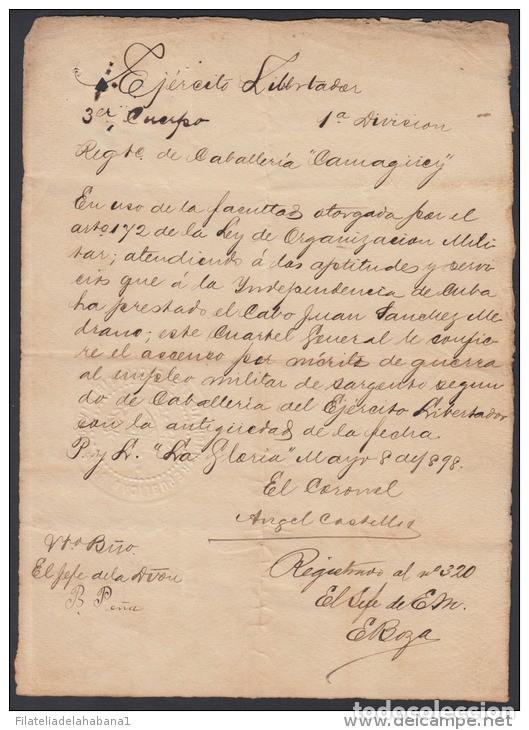 Ejército Libertador
3er Cuerpo 1a Division
Regto. de Caballería "Camagüey"
En uso de la facultad otorgada por el
arto 172 de la Ley de Organizacion Mili-
tar; atendiendo á las aptitudes y servi-
cios que á la Yndependencia de Cuba
ha prestado el Cabo Juan Sanchez Me-
drano; este Cuartel General le confie-
re el ascenso por mérito de guerra
al empleo militar de sargento segun-
do de Caballeria del Ejército Libertador
con la antigüedad de la fecha
P. y L. "La Gloria" Mayo 8 de 1898.
El Coronel
Angel Castillo
Vto Bno.
El Jefe de la Dvon
B. Peña
Registrado al no 320
El Jefe de E.M.
E Boza
FilateliadelaHabana1
todocoleccion.net